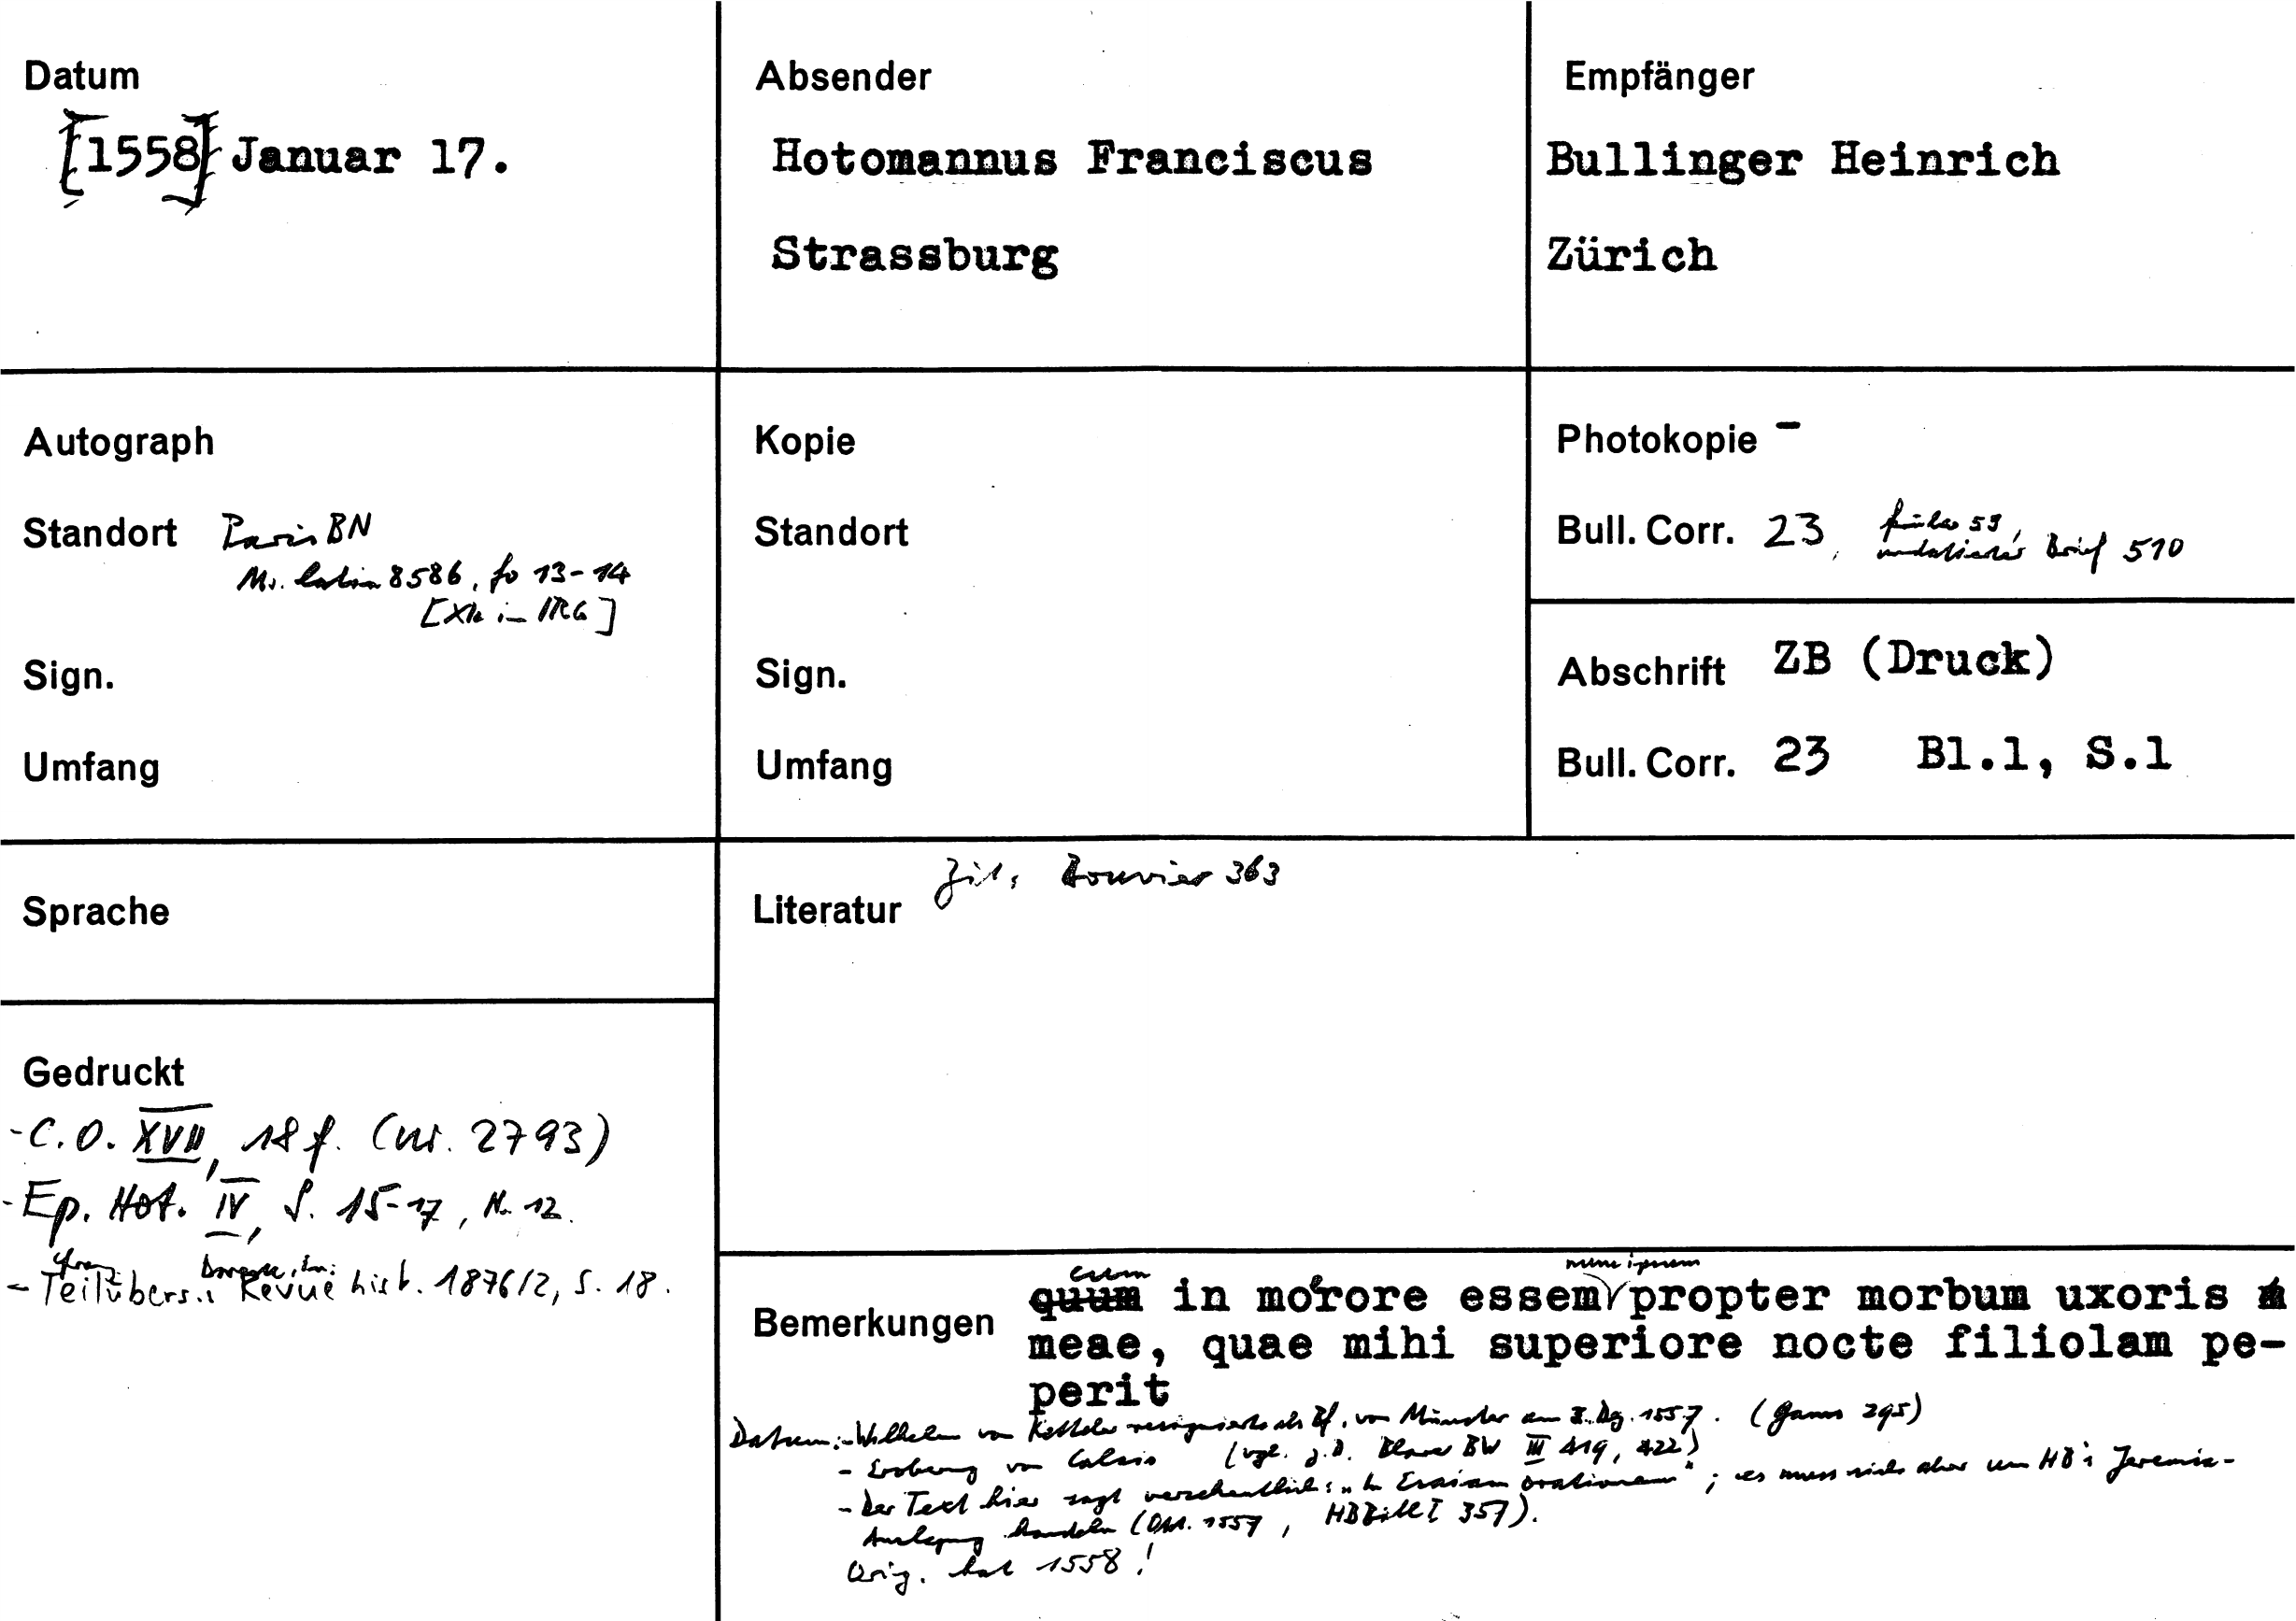 Datum
[1558] Januar 17.
Absender
Hotomannus Franciscus
Strassburg
Empfänger
Bullinger Heinrich
Zürich
Autograph
Standort Paris BN
Ms. latin 8586, fo 13-14
[Xk in IRG]
Sign.
Umfang
Kopie
Standort
Sign.
Umfang
Photokopie -
Bull. Corr. 23, früher 59,
undatierter Brief 510
Abschrift ZB (Druck)
Bull. Corr. 23 Bl.1, S.1
Sprache
Literatur Zit. Bouvier 363
Gedruckt
- C.O. XVII, 18 f. (Nr. 2793)
- Ep. Hot. IV, S. 15-17, Nr. 12.
- Teilübers.: Revue hist. 1876/2, S. 18.
Bemerkungen
cum nunc ipsum
quum in moerore essem propter morbum uxoris
meae, quae mihi superiore nocte filiolam pe-
perit
Datum: - Wilhelm von Ketteler resignierte als Bf. von Münster am 3. Dez. 1557. (Gams 295)
- Eroberung von Calais (vgl. z.B. Blarer BW III 419, 422)
- Der Text hier sagt versehentlich: "In Esaiam orationem"; es muss sich aber um HB's Jeremia-
Auslegung handeln (1557, HBBibl I 357).
Orig. hat 1558!